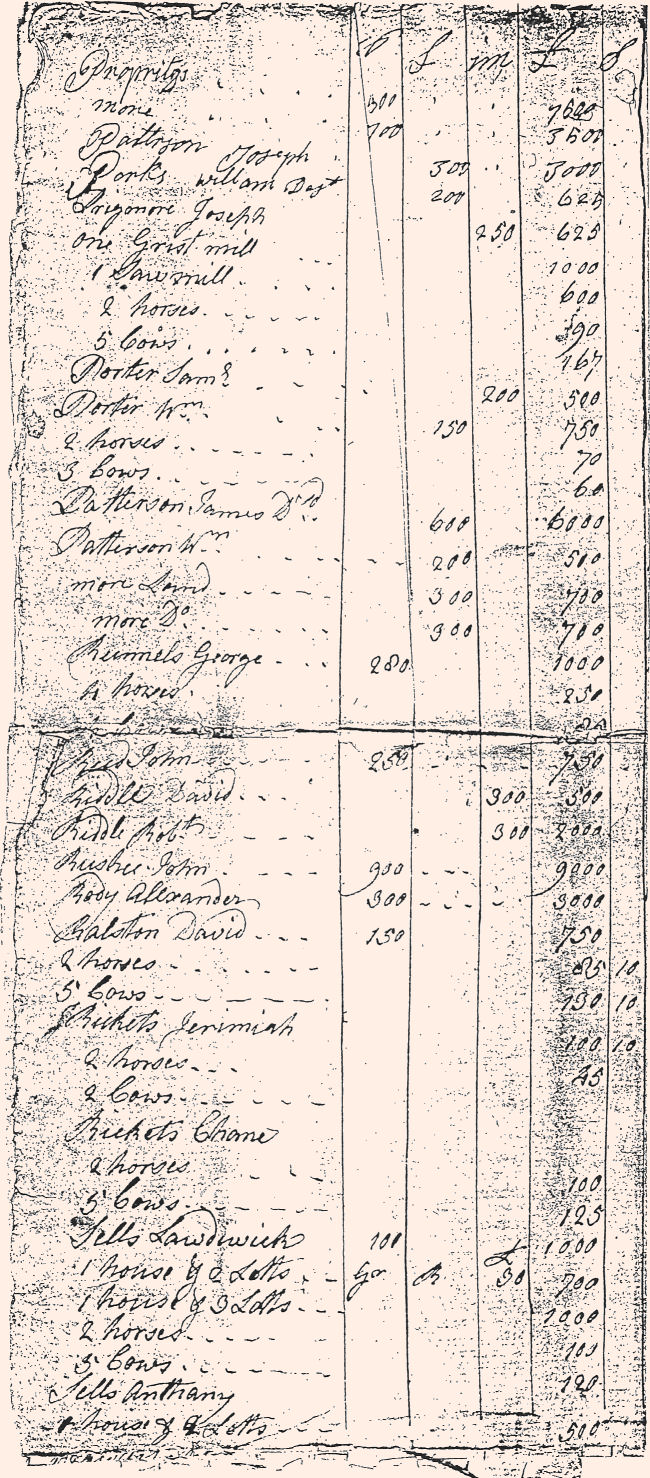 S m £ S
Propritys
more 300 7500
Pattrson Joseph 700 3500
Parks william Dast 300 3000
Prigmore Joseph 200 625
one Grist mill 250 625
1 Sawmill 1000
2 horses 600
5 Cows 90
Porter Saml 167
Porter Wm 200 500
2 horses 150 750
3 Cows 70
Patterson James 60
Patterson Wm 600 6000
more Land 200 500
more Do 300 700
Runnels George 300 700
4 horses 280 1000
250
Reed John 250 750
Riddle David 300 500
Riddle Robt 300 2000
Rusher John 900 9000
Rody Allexander 300 3000
Ralston David 150 750
2 horses 85 10
5 Cows 130 10
Rickets Jerimiah
2 horses 100 10
2 Cows 45
Rickets Chane
2 horses
5 Cows 100
125
Sells Lawdwick 101 1000
1 house & 2 Lotts Gr R £ 30 700
1 house & 3 Lotts 1000
2 horses 100
5 Cows 120
Sells Anthany
1 house & 2 Lotts 500